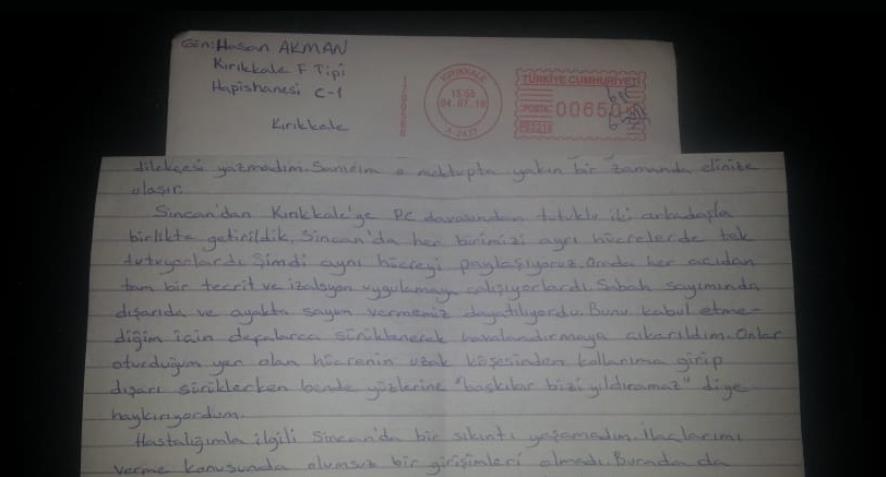 Gön: Hasan AKMAN
Kırıkkale F Tipi
Hapishanesi C-1
Kırıkkale
KIRIKKALE
04.07.18
TÜRKİYE CUMHURİYETİ
POSTA
00650
dilekçesi yazmadım. Sanırım o mektupta yakın bir zamanda elinize
ulaşır.
Sincan'dan Kırıkkale'ye PC davasından tutuklu iki arkadaşla
birlikte getirildik. Sincan'da her birimizi ayrı hücrelerde tek
tutuyorlardı. Şimdi aynı hücreyi paylaşıyoruz. Orada her açıdan
tam bir tecrit ve izalsyon uygulamaya çalışıyorlardı. Sabah sayımında
dışarıda ve ayakta sayım vermemiz dayatılıyordu. Bunu kabul etme-
diğim için defalarca sürüklenerek havalandırmaya çıkarıldım. Onlar
oturduğum yer olan hücrenin uzak köşesinden kollarıma girip
dışarı sürüklerken bende yüzlerine "baskılar bizi yıldıramaz" diye
haykırıyordum.
Hastalığımla ilgili Sincan'da bir sıkıntı yaşamadım. İlaçlarımı
verme konusunda olumsuz bir girişimleri olmadı. Burada da